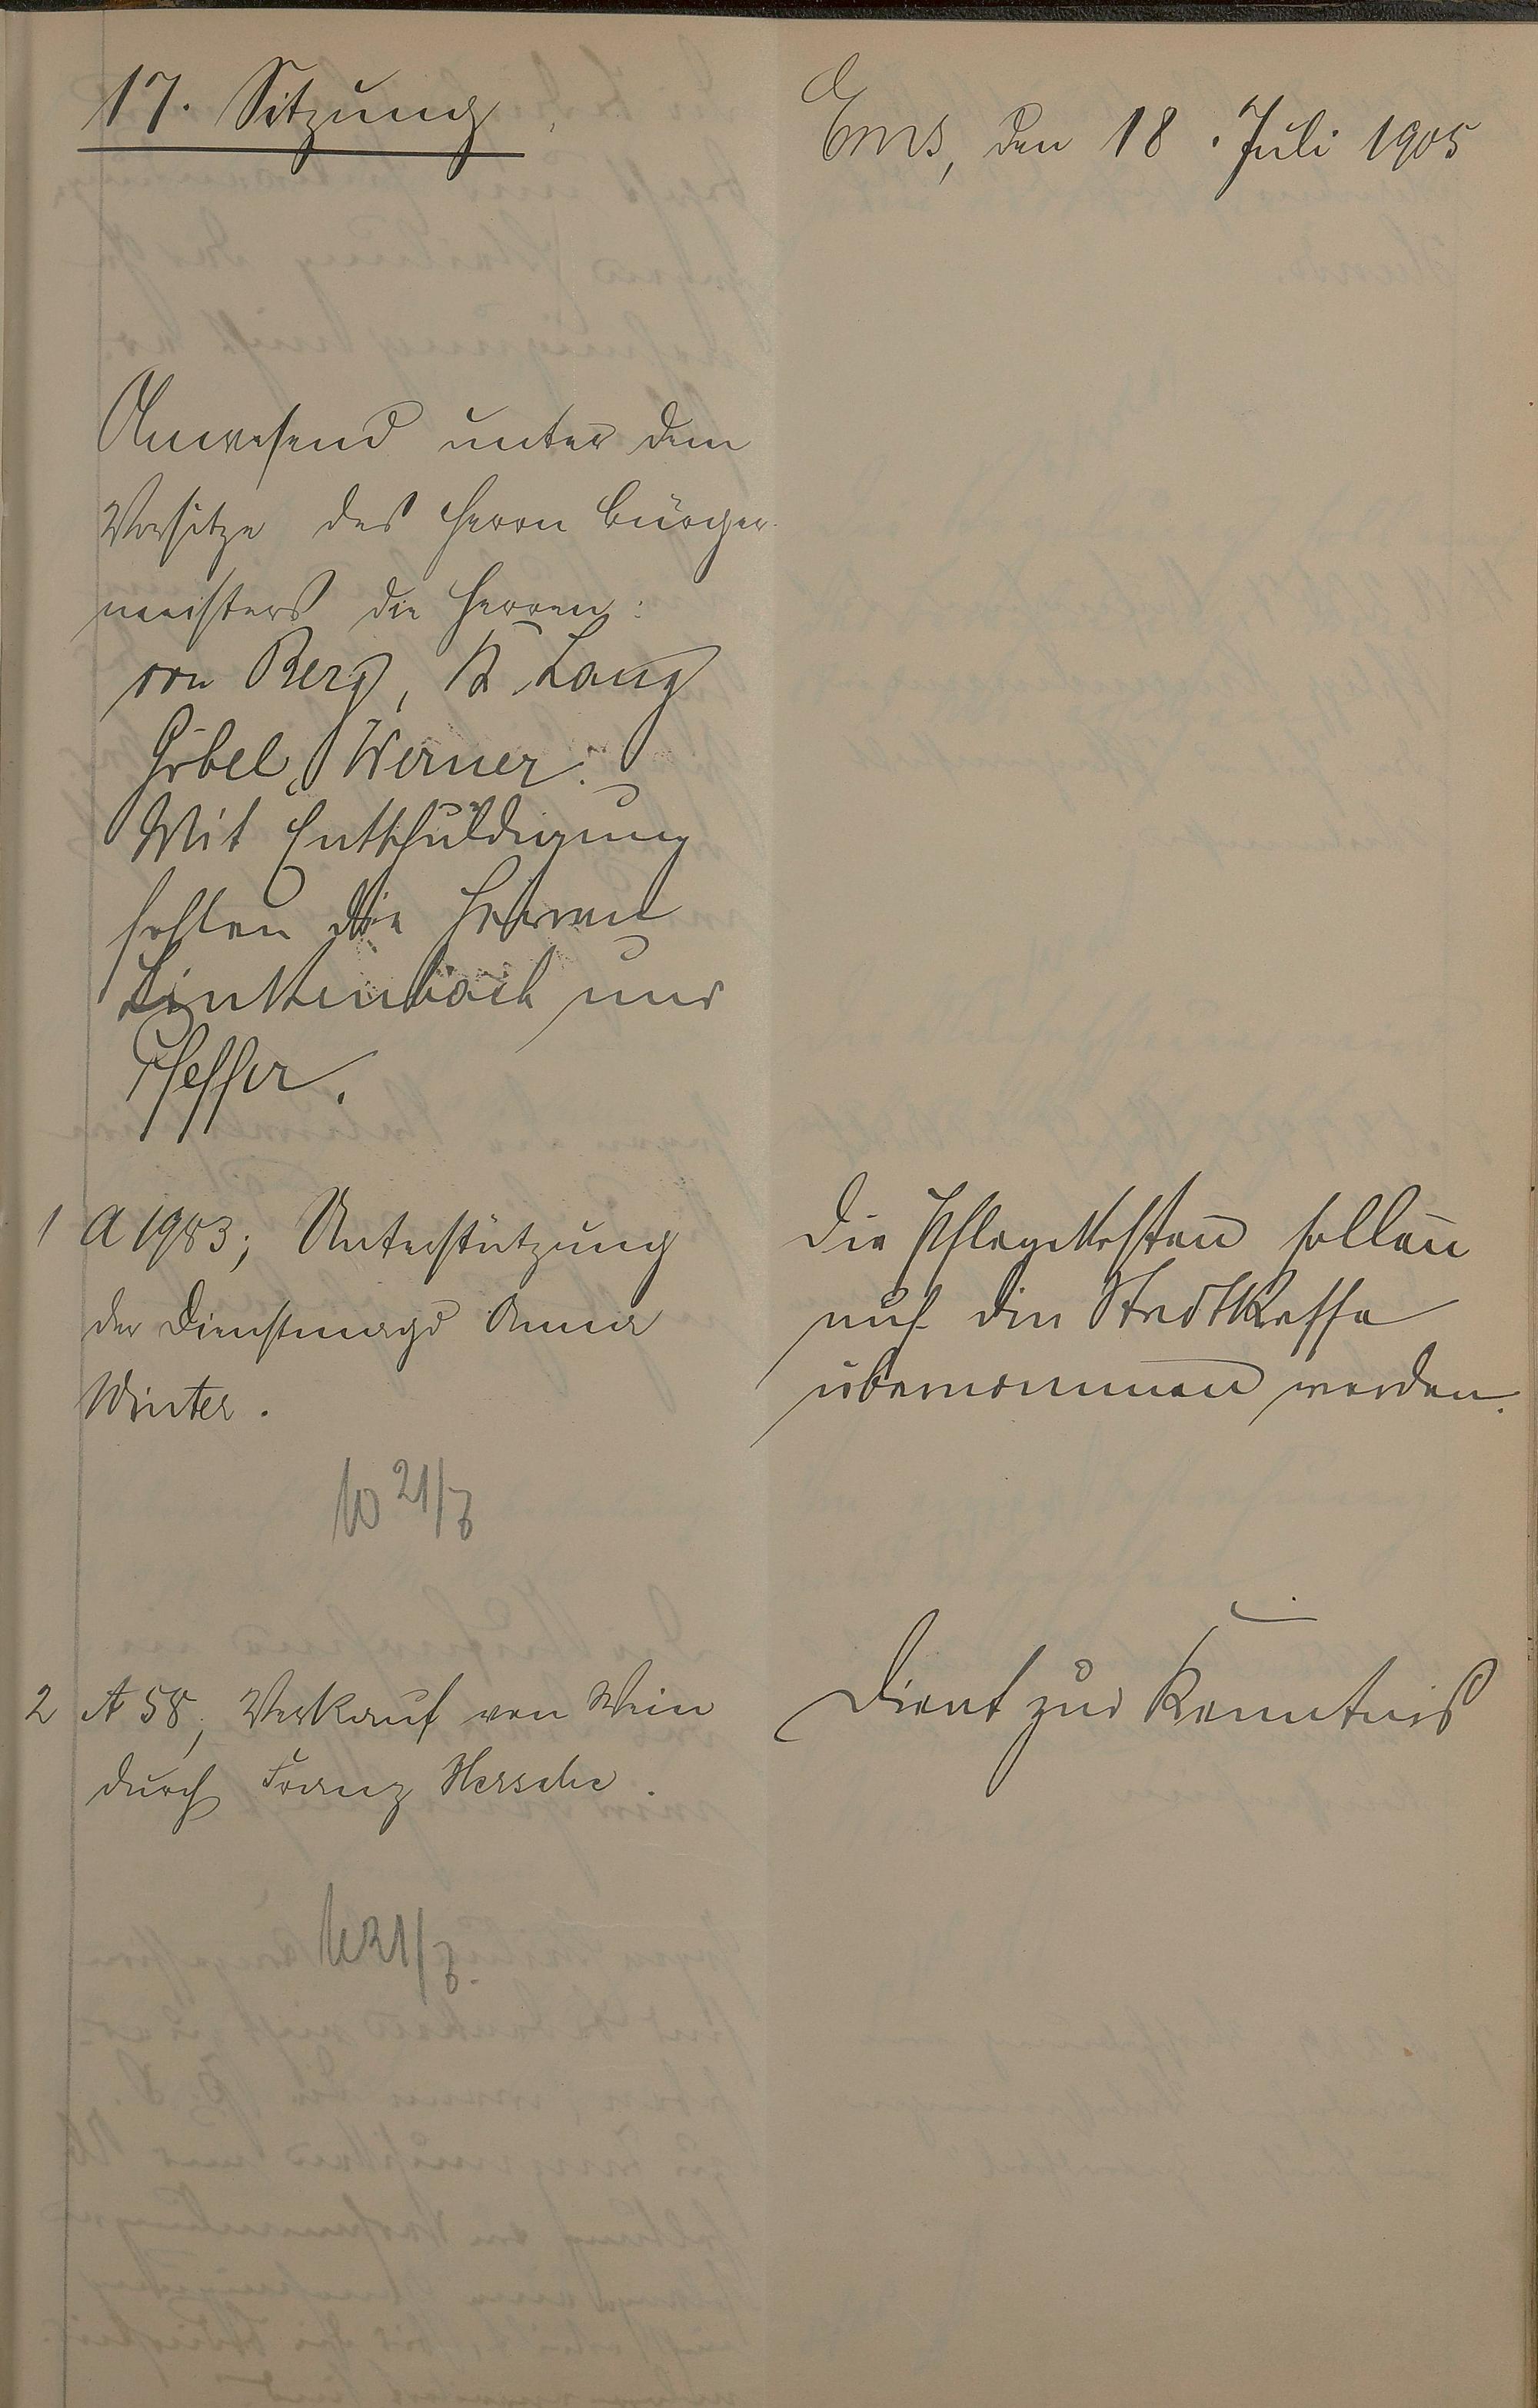 17. Sitzung
Ems, den 18. Juli 1905
Anwesend unter dem
Vorsitze des Herrn Bürger-
meisters die Herren:
von Berg, Lang
Göbel, Werner.
Mit Entschuldigung
fehlen die Herren
Linkenbach und
Pfeffer.
1 A 1983; Unterstützung
der Dienstmagd Anna
Winter.
Die Pflegekosten sollen
auf die Stadtkasse
übernommen werden.
21/7
2 A 58; Verkauf von Wein
durch Franz
Dient zur Kenntnis
21/7.